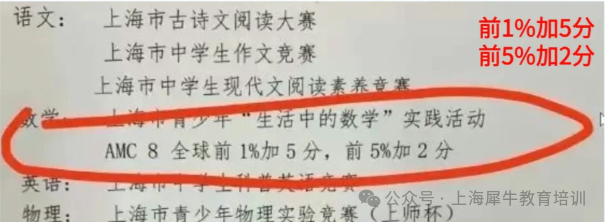 语文：上海市古诗文阅读大赛
上海市中学生作文竞赛
上海市中学生现代文阅读素养竞赛
数学：上海市青少年“生活中的数学”实践活动
AMC 8 全球前1%加5分，前5%加2分
英语：上海市中学生科普英语竞赛
物理：上海市青少年物理实验竞赛（上师杯）
前1%加5分
前5%加2分
公众号·上海犀牛教育培训